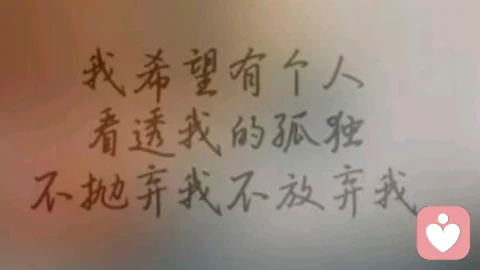 我希望有个人
看透我的孤独
不抛弃我不放弃我